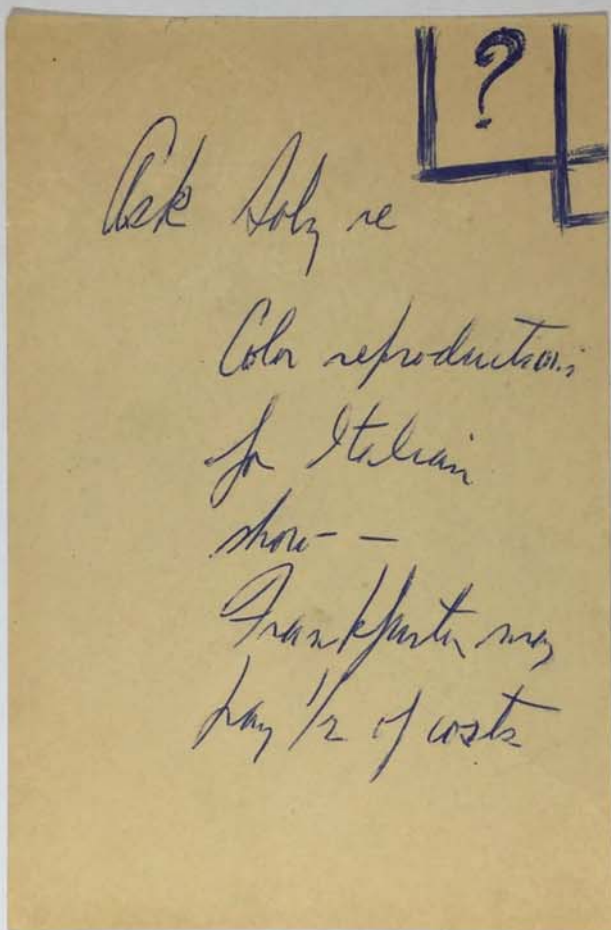 ?
Ask Soby re
Color reproductions
for Italian
show--
Frankfurter may
pay 1/2 of costs